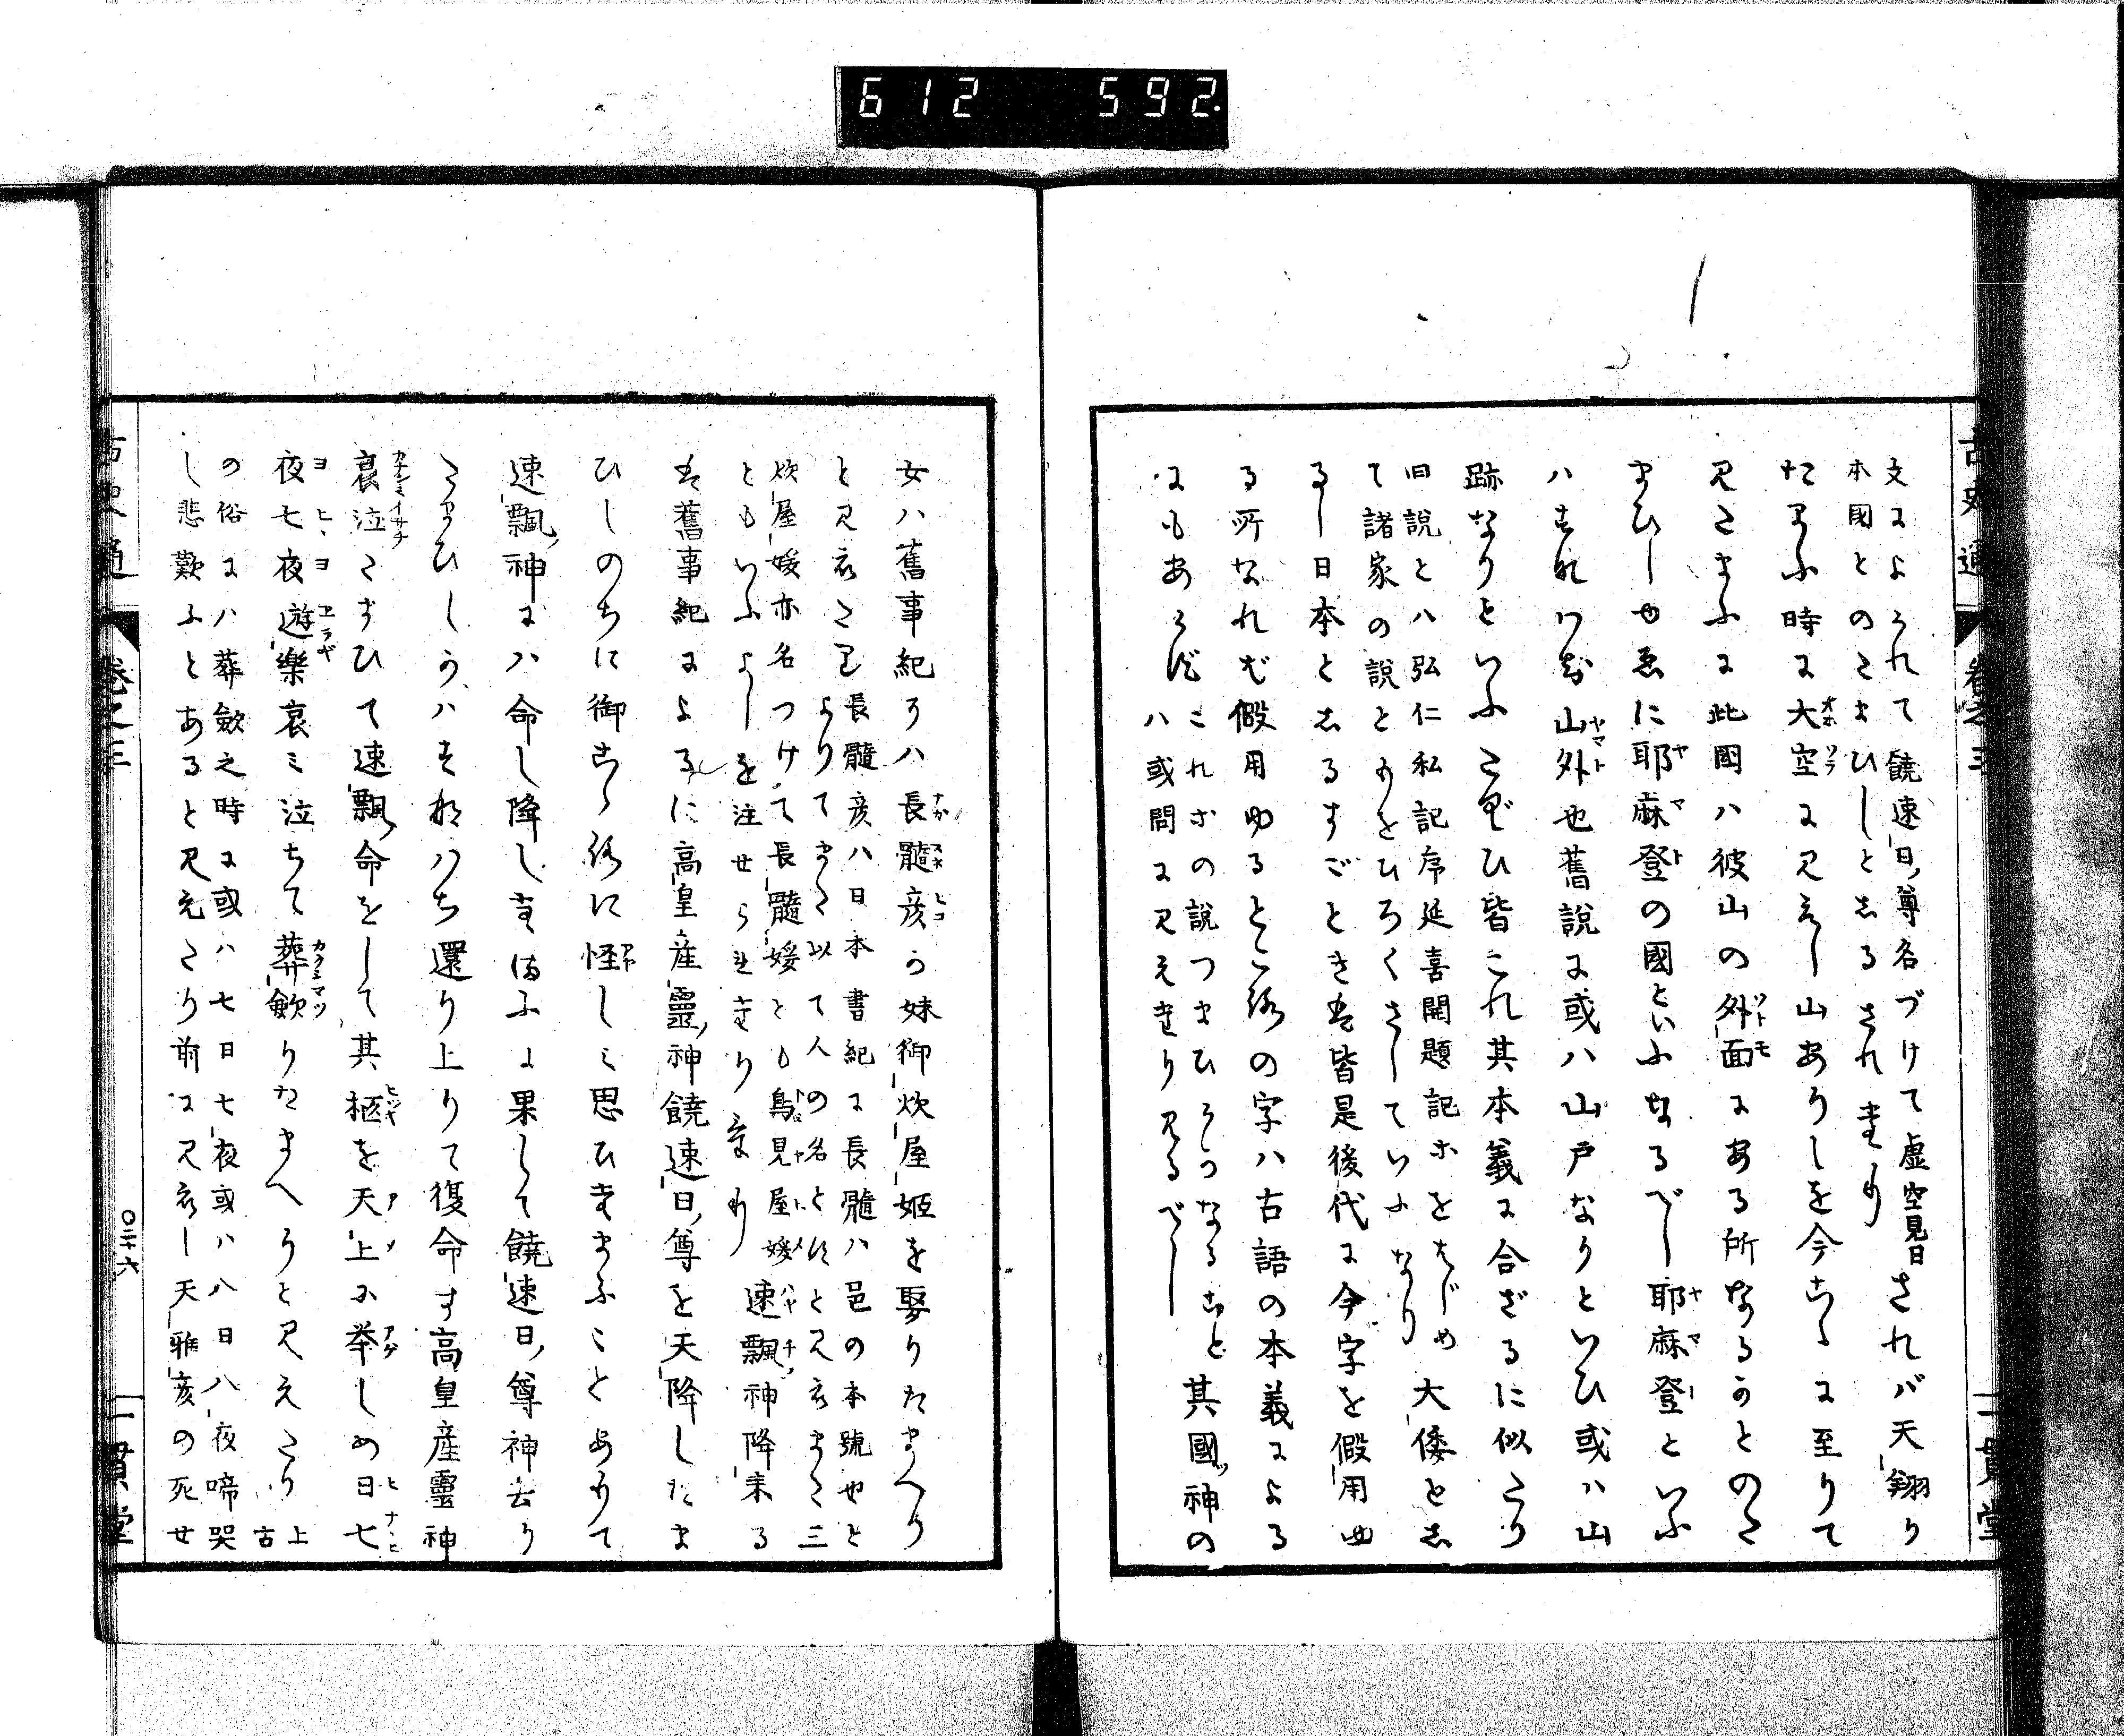 612 592.
古史通 卷之三 一貫堂
文によられて饒速日尊名づけて虚空見日
本國とのたまひしとしるされたり
されバ天翔り
たまふ時に大空に見えし山ありしを今こゝに至りて
見たまふに此國ハ彼山の外面にある所なるかとのた
まひしゆゑに耶麻登の國といふなるべし耶麻登といふ
ハすなハち山外也舊説に或ハ山戸なりといひ或ハ山
跡なりといふたぐひ皆これ其本義に合ざるに似たり
旧説とハ弘仁私記序延喜開題記ホをはじめ
て諸家の説とものをひろくさしていふなり
大倭としるし日本としるすごとき其皆是後代に今字を假用ゆ
る所なれば假用ゆるところの字ハ古語の本義による
にもあらず
これホの説つまひらかなること
ハ或問に見えたり見るべし
其國神の
女ハ舊事紀にハ長髓彦の妹御炊屋姫を娶りたまへり
と見えたり
長髓彦ハ日本書紀に長髓ハ邑の本號也と
よりてまた以て人の名とすと見えまた三
炊屋媛亦名つけて長髓媛とも鳥見屋媛
ともいふよしを注せられたりき
速飄神降来る
其舊事紀によるに高皇産靈神饒速日尊を天降したま
ひしのちに御こゝろに怪しミ思ひたまふことありて
速飄神にハ命し降したまふに果して饒速日尊神去り
たまひしかハすなハち還り上りて復命す高皇産靈神
哀泣たまひて速飄命をして其柩を天上に挙しめ日七
夜七夜遊樂哀ミ泣ちて葬斂りたまへりと見えたり
上古
の俗にハ葬斂之時に或ハ七日七夜或ハ八日八夜啼哭
し悲歎ふとあると見えたり前に見えし天雅彦の死せ
古史通 卷之三 〇三十六 一貫堂